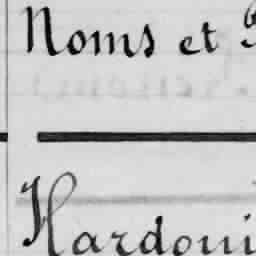 Noms et
Hardoui